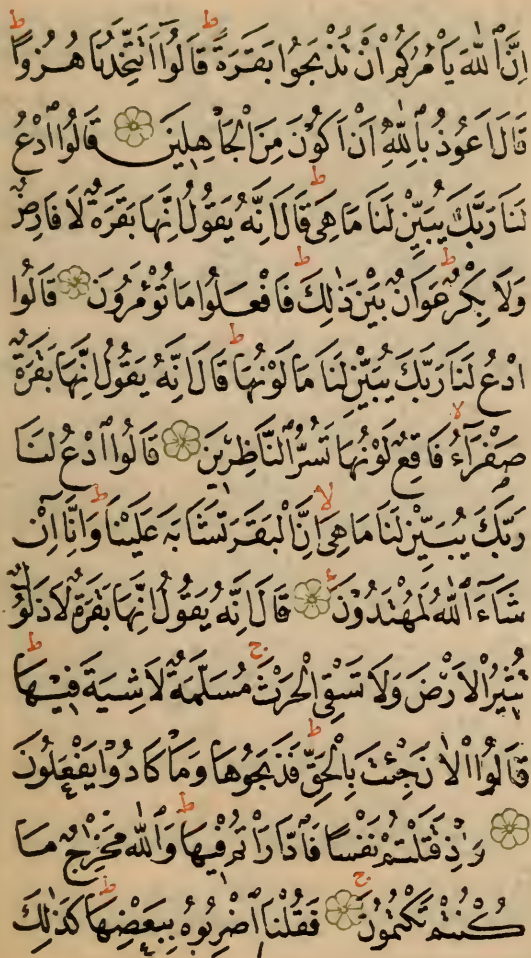 اِنَّ ٱللّٰهَ يَأْمُرُكُمْ اَنْ تَذْبَحُوا بَقَرَةً ط قَالُوا اَتَتَّخِذُنَا هُزُوًا ط
قَالَ اَعُوذُ بِٱللّٰهِ اَنْ اَكُونَ مِنَ الْجَاهِلِينَ قَالُوا ٱدْعُ
لَنَا رَبَّكَ يُبَيِّنْ لَنَا مَا هِىَ ط قَالَ اِنَّهُ يَقُولُ اِنَّهَا بَقَرَةٌ لَا فَارِضٌ
وَلَا بِكْرٌ ط عَوَانٌ بَيْنَ ذٰلِكَ ط فَافْعَلُوا مَا تُؤْمَرُونَ قَالُوا
ادْعُ لَنَا رَبَّكَ يُبَيِّنْ لَنَا مَا لَوْنُهَا ط قَالَ اِنَّهُ يَقُولُ اِنَّهَا بَقَرَةٌ
صَفْرَآءُ لا فَاقِعٌ لَوْنُهَا تَسُرُّ ٱلنَّاظِرِينَ قَالُوا ٱدْعُ لَنَا
رَبَّكَ يُبَيِّنْ لَنَا مَا هِىَ لا اِنَّ الْبَقَرَ تَشَابَهَ عَلَيْنَا ط وَاِنَّا اِنْ
شَآءَ ٱللّٰهُ لَمُهْتَدُونَ قَالَ اِنَّهُ يَقُولُ اِنَّهَا بَقَرَةٌ لَا ذَلُولٌ
تُثِيرُ الْاَرْضَ وَلَا تَسْقِى الْحَرْثَ ج مُسَلَّمَةٌ لَا شِيَةَ فِيهَا ط
قَالُوا الْاٰنَ جِئْتَ بِالْحَقِّ ط فَذَبَحُوهَا وَمَا كَادُوا يَفْعَلُونَ
وَاِذْ قَتَلْتُمْ نَفْسًا فَٱدّٰرَأْتُمْ فِيهَا ط وَٱللّٰهُ مُخْرِجٌ مَا
كُنْتُمْ تَكْتُمُونَ ج فَقُلْنَا ٱضْرِبُوهُ بِبَعْضِهَا ط كَذٰلِكَ